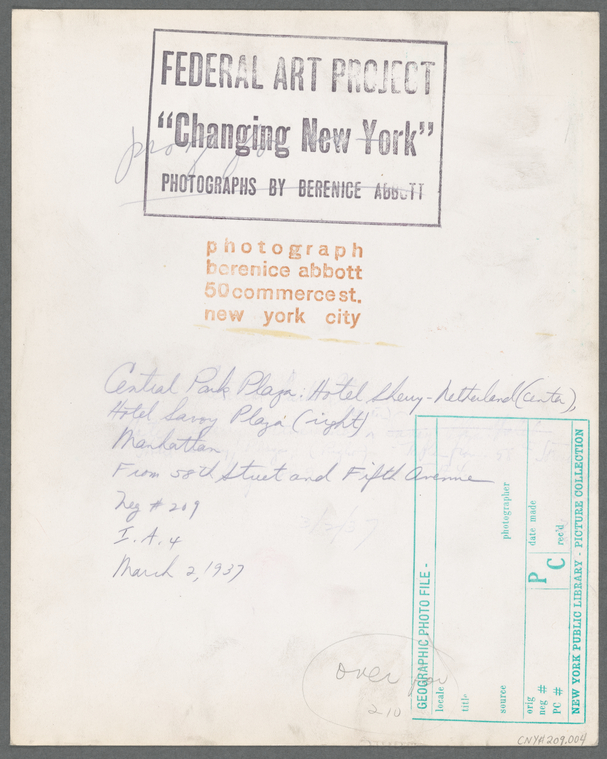 FEDERAL ART PROJECT
"Changing New York"
PHOTOGRAPHS BY BERENICE ABBOTT
photograph
berenice abbott
50 commerce st.
new york city
Central Park Plaza: Hotel Sherry-Netherland (center),
Hotel Savoy Plaza (right)
Manhattan
From 58th Street and Fifth Avenue
Neg # 209
I. A. 4
March 2, 1937
over
210
GEOGRAPHIC PHOTO FILE -
locale
title
source
photographer
orig
neg #
PC #
date made
rec'd
PC
NEW YORK PUBLIC LIBRARY - PICTURE COLLECTION
CNY#209.004